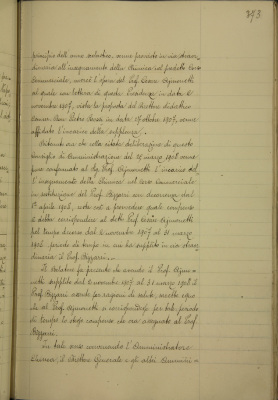 293
principio dell'anno scolastico, venne provveduto in via straor-
dinaria all'insegnamento della Chimica nel predetto Corso
Commerciale, mercè l'opera del Prof. Cesare Agmonetti
al quale con lettera di questa Presidenza in data 6
novembre 1907, vista la proposta del direttore didattico
Comm. San Pietro in data 29 ottobre 1907, venne
affidato l'incarico della supplenza.
Ritenuto ora che colla citata deliberazione di questo
Consiglio di Amministrazione del 28 marzo 1908 venne
pure confermato al Sig. Prof. Agmonetti l'incarico del-
l'insegnamento della Chimica nel Corso Commerciale
in sostituzione del Prof. Bizzarri con decorrenza dal
1º aprile 1908, resta ora a provvedere quale compenso
si debba corrispondere al detto Prof. Cesare Agmonetti
pel tempo decorso dal 6 novembre 1907 al 31 marzo
1908 periodo di tempo in cui ha supplito in via straor-
dinaria il Prof. Bizzarri.
Il Relatore fa presente che avendo il Prof. Agmo-
netti supplito dal 6 novembre 1907 al 31 marzo 1908 il
Prof. Bizzarri assente per ragioni di salute, sarebbe equo
che al Prof. Agmonetti si corrispondesse per tale periodo
di tempo lo stesso compenso che era assegnato al Prof.
Bizzarri.
In tale senso convenendo l'Amministratore
il Direttore Generale e gli altri Ammini-